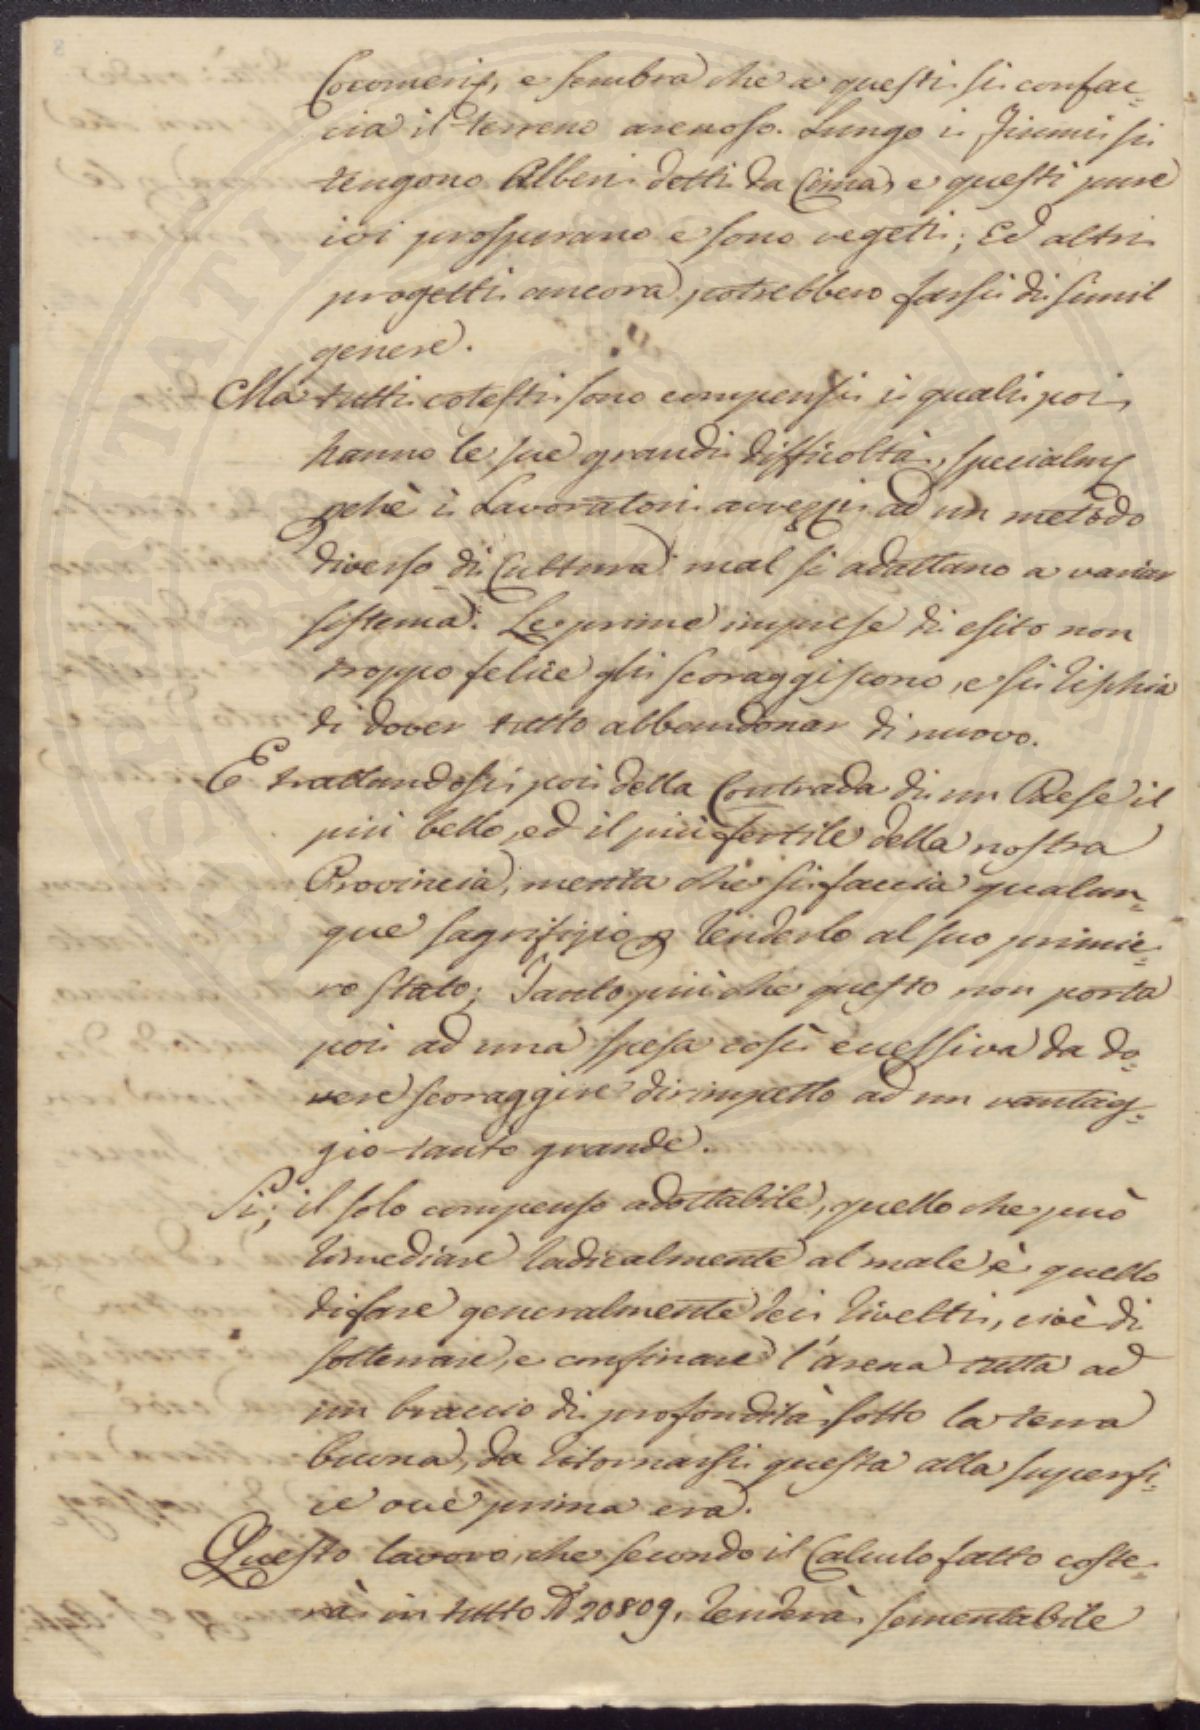 Cocomeri, e sembra che a questi si confac=
cia il terreno arenoso. Lungo i Fiumi si
tengono Alberi detti da Cima, e questi pure
ivi prosperano e sono vegeti; Ed altri
progetti ancora potrebbero farsi di simil
genere.
Ma tutti cotesti sono compensi i quali poi
hanno le sue grandi difficoltà, specialm.
pchè i Lavoratori avvezzi ad un metodo
diverso di Cultura mal si adattano a variar
sistema. Le prime imprese di esito non
troppo felice gli scoraggiscono, e si rischia
di dover tutto abbandonar di nuovo.
E trattandosi poi della Contrada di un Paese il
più bello, ed il più fertile della nostra
Provincia, merita che si faccia qualun=
que sagrifizio p renderlo al suo primie=
ro stato; Tanto più che questo non porta
poi ad una spesa così eccessiva da do=
vere scoraggire dirimpetto ad un vantag=
gio tanto grande.
Si; il solo compenso adottabile, quello che può
rimediare radicalmente al male è quello
di fare generalmente dei rivelti, cioè di
sotterrare, e confinare l'arena tutta ad
un braccio di profondità sotto la terra
buona, da ritornarsi questa alla superfi=
cie ove prima era.
Questo lavoro, che secondo il Calculo fatto coste=
rà in tutto 20809. renderà sementabile